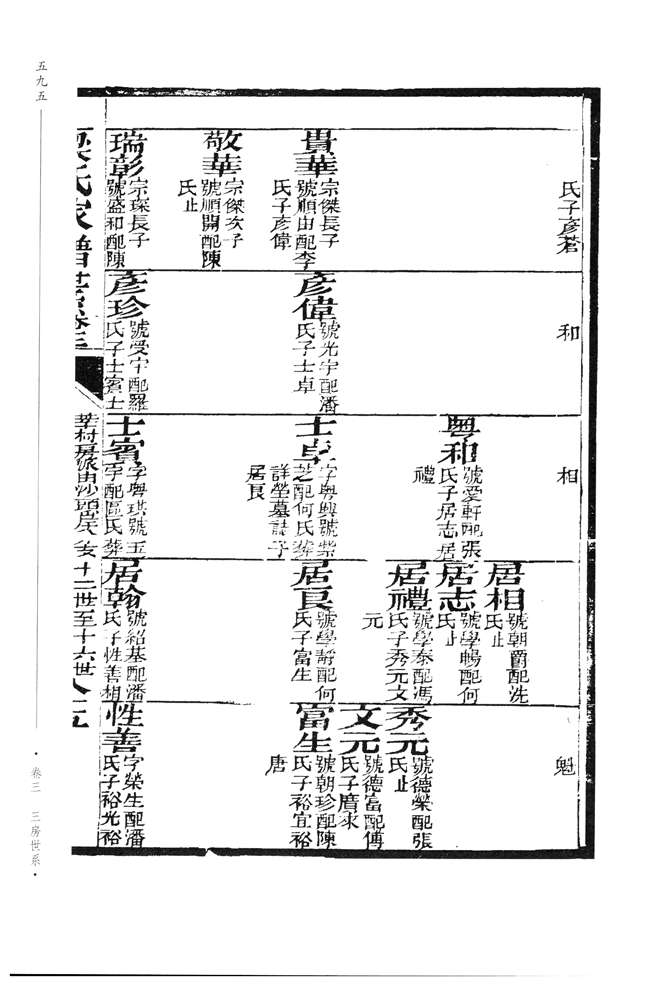 五九五
卷三　三房世系
氏子彥蒼
貴華
宗傑長子
號順由配李
氏子彥偉
敬華
宗傑次子
號順開配陳
氏止
瑞彭
宗琛長子
號盛和配陳
和
彥偉
號光宇配潘
氏子士卓
彥珍
號受宇配羅
氏子士賓士
相
粵和
號愛軒配張
氏子居志居
禮
士卓
字粵興號紫
芝配何氏葬
詳塋墓誌子
居良
士賓
字粵琪號玉
宇配區氏葬
居相
號朝爵配冼
氏止
居志
號學暢配何
氏止
居禮
號學泰配馮
氏子秀元文
元
居良
號學靜配何
氏子富生
居翰
號紹基配潘
氏子性善相
魁
秀元
號德榮配張
氏止
文元
號德富配傅
氏子廣求
富生
號朝珍配陳
氏子裕宜裕
唐
性善
字榮生配潘
氏子裕光裕
氏家譜世系卷三
莘村房派由沙頭居
十二世至十六世